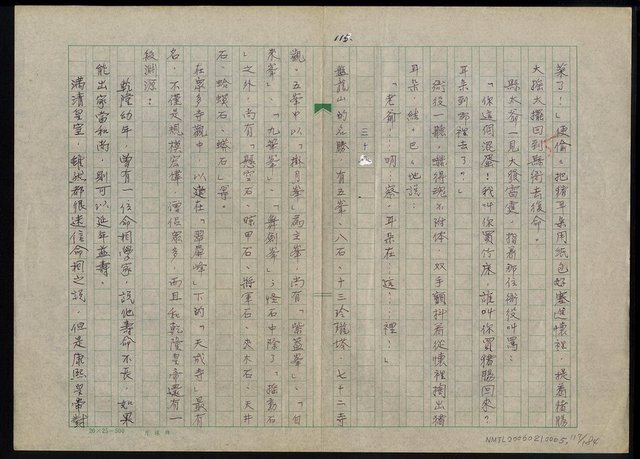 115.
菜了!」便偷偷把豬耳朵用紙包好塞進懷裡,提着豬腸
大搖大擺回到縣衙去復命。
縣太爺一見大發雷霆,指着那位衙役叫罵:
「你這個混蛋!我叫你買竹床,誰叫你買豬腸回來?
耳朵到那裡去了?」
衙役一聽,嚇得魂不附體,雙手顫抖着從懷裡掏出豬
耳朵,結結巴巴地說:
「老爺……明…察,耳朵在…這…裡…!」
三十九
盤龍山的名勝,有五峯、八石、十三玲瓏塔、七十二寺
觀。五峯中以「掛月峯」為主峯,尚有「紫蓋峯」、「自
來峯」、「九華峯」、「舞劍峯」;怪石中除了「搖動石
」之外,尚有「懸空石、晾甲石、將軍石、夾木石、天井
石、蛤蟆石、蟒石」等。
在眾多寺觀中,以建在「翠屏峰」下的「天成寺」最有
名,不僅是規模宏偉,僧侶眾多,而且和乾隆皇帝還有一
段淵源:
乾隆幼年,曾有一位命相學家,說他壽命不長,如果
能出家當和尚,則可以延年益壽。
滿清皇室,雖然都很迷信命相之說,但是康熙皇帝對
20×25=500
NMTL20060210005, 117/184